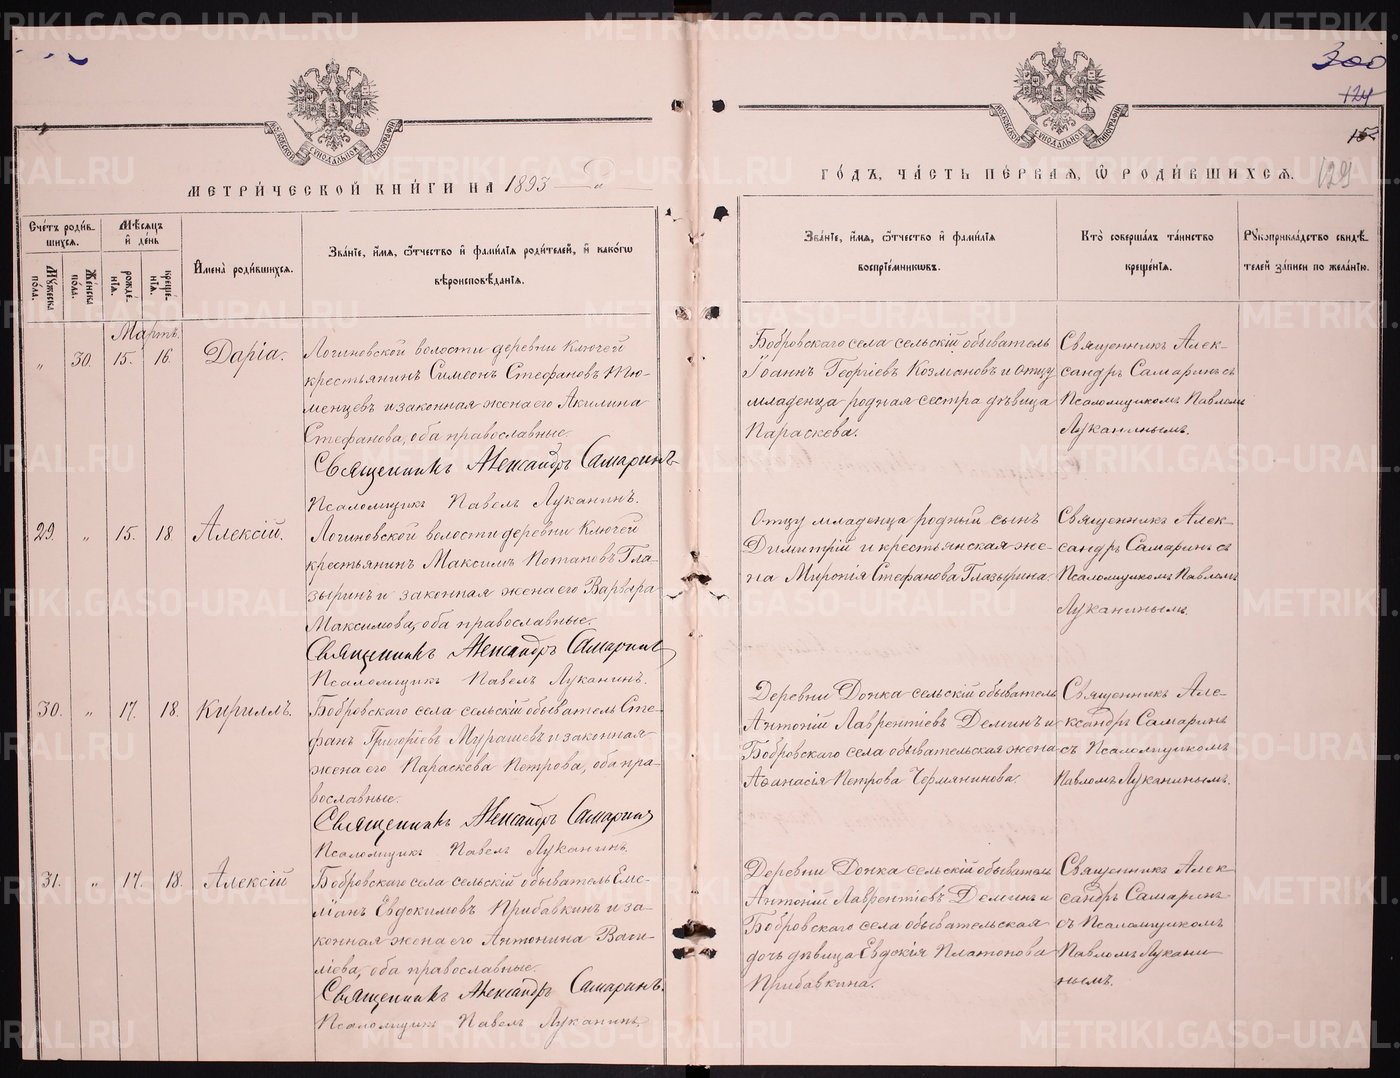 МЕТРИ́ЧЕСКОЙ КНИ́ГИ НА 1893
ГО́ДЪ, ЧА́СТЬ ПЕ́РВАЯ, Ѡ҆ РОДИ́ВШИХСЯ.
300
124
129
МОСКОВСКОЙ СѴНОДАЛЬНОЙ ТИПОГРАФІИ
МОСКОВСКОЙ СѴНОДАЛЬНОЙ ТИПОГРАФІИ
Сче́тъ роди́в-
шихся.
Му́жеска пола.
Же́нска пола.
Мѣ́сяцъ
и҆ де́нь
рожде́-
нїя.
креще́-
нїя.
И҆мена̀ роди́вшихся.
Зва́нїе, и҆́мя, ѻ҆́тчество и҆ фами́лїя роди́телей, и҆ како́гѡ
вѣроисповѣ́данїя.
Зва́нїе, и҆́мя, ѻ҆́тчество и҆ фами́лїя
воспрїе́мникѡвъ.
Кто̀ соверша́лъ та́инство
креще́нїя.
Рꙋкоприкла́дство свидѣ́-
телей за́писи по жела́нїю.
Мартъ.
„ 30. 15. 16 Дарія.
Логиновской волости деревни Ключей
крестьянинъ Симеонъ Стефановъ Тю-
менцевъ и законная жена его Акилина
Стефанова, оба православные.
Священникъ Александръ Самаринъ
Псаломщикъ Павелъ Луканинъ.
Бобровскаго села сельскій обыватель
Іоаннъ Георгіевъ Козмановъ и отцу
младенца родная сестра дѣвица
Параскева.
Священникъ Алек-
сандръ Самаринъ съ
Псаломщикомъ Павломъ
Луканинымъ.
29. „ 15. 18 Алексій.
Логиновской волости деревни Ключей
крестьянинъ Максимъ Потаповъ Гла-
зыринъ и законная жена его Варвара
Максимова, оба православные.
Священникъ Александръ Самаринъ
Псаломщикъ Павелъ Луканинъ.
Отцу младенца родный сынъ
Димитрій и крестьянская же-
на Миропія Стефанова Глазырина.
Священникъ Алек-
сандръ Самаринъ съ
Псаломщикомъ Павломъ
Луканинымъ.
30. „ 17. 18. Кириллъ.
Бобровскаго села сельскій обыватель Сте-
фанъ Григоріевъ Мурашевъ и законная
жена его Параскева Петрова, оба пра-
вославные.
Священникъ Александръ Самаринъ
Псаломщикъ Павелъ Луканинъ.
Деревни Донка сельскій обыватель
Антоній Лаврентіевъ Деминъ и
Бобровскаго села обывательская жена
Аѳанасія Петрова Чермянинова.
Священникъ Але-
ксандръ Самаринъ
съ Псаломщикомъ
Павломъ Луканинымъ.
31. „ 17. 18. Алексій
Бобровскаго села сельскій обыватель Еме-
ліанъ Евдокимовъ Прибавкинъ и за-
конная жена его Антонина Васи-
ліева, оба православные.
Священникъ Александръ Самаринъ.
Псаломщикъ Павелъ Луканинъ.
Деревни Донка сельскій обыватель
Антоній Лаврентіевъ Деминъ и
Бобровскаго села обывательская
дочь дѣвица Евдокія Платонова
Прибавкина.
Священникъ Алек-
сандръ Самаринъ
съ Псаломщикомъ
Павломъ Лукани-
нымъ.
METRIKI.GASO-URAL.RU